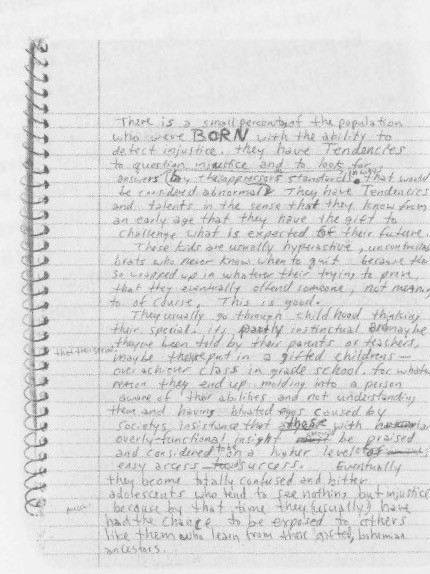 There is a small percentage of the population
who were BORN with the ability to
detect injustice. they have Tendencies
to question injustice and to look for
answers (by the oppressors standards, that would
be considered abnormal). They have Tendencies
and talents in the sense that they know from
an early age that they have the gift to
challenge what is expected of their future.
These kids are usually hyperactive, uncontrollable
brats who never know when to quit because the
so wrapped up in whatever their trying to prove,
that they eventually offend someone, not meaning
to of course. This is good.
They usually go through child hood thinking
their special. its partly instinctual maybe
theyve been told by their parents or teachers,
maybe theyre put in a gifted childrens —
over achiever class in grade school. for whatever
reason they end up molding into a person
aware of their abilities and not understanding
them and having bloated egos caused by
societys insistence that those with
overly-functional insight be praised
and considered to be on a higher level of
easy access success. Eventually
they become totally confused and bitter
adolescents who tend to see nothing but injustice
because by that time they (usually) have
had the chance to be exposed to others
like them who learn from their gifted, bohemian
ancestors.